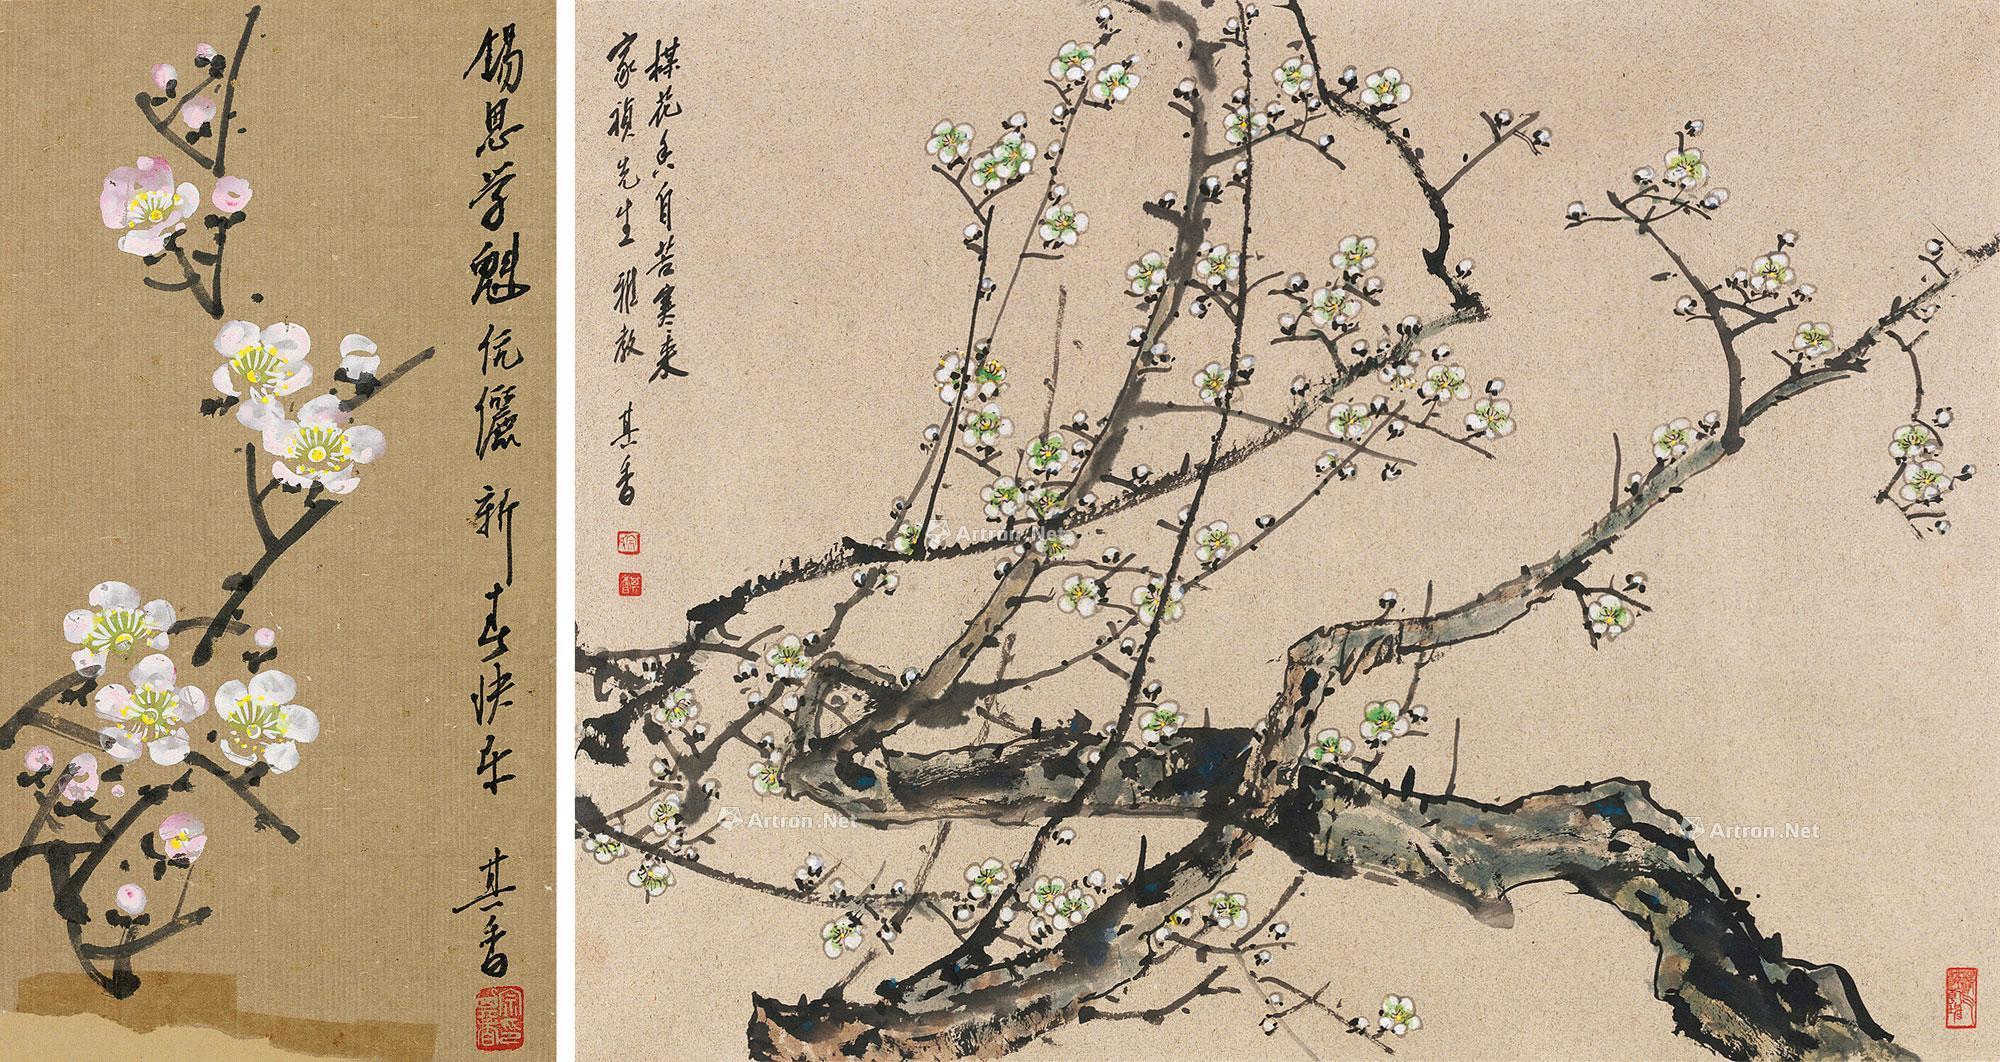 锡恩学魁伉儷 新春快乐 其香
楳花香自苦寒来
家禎先生雅教 其香
Artron.Net
Artron.Net
Artron.Net